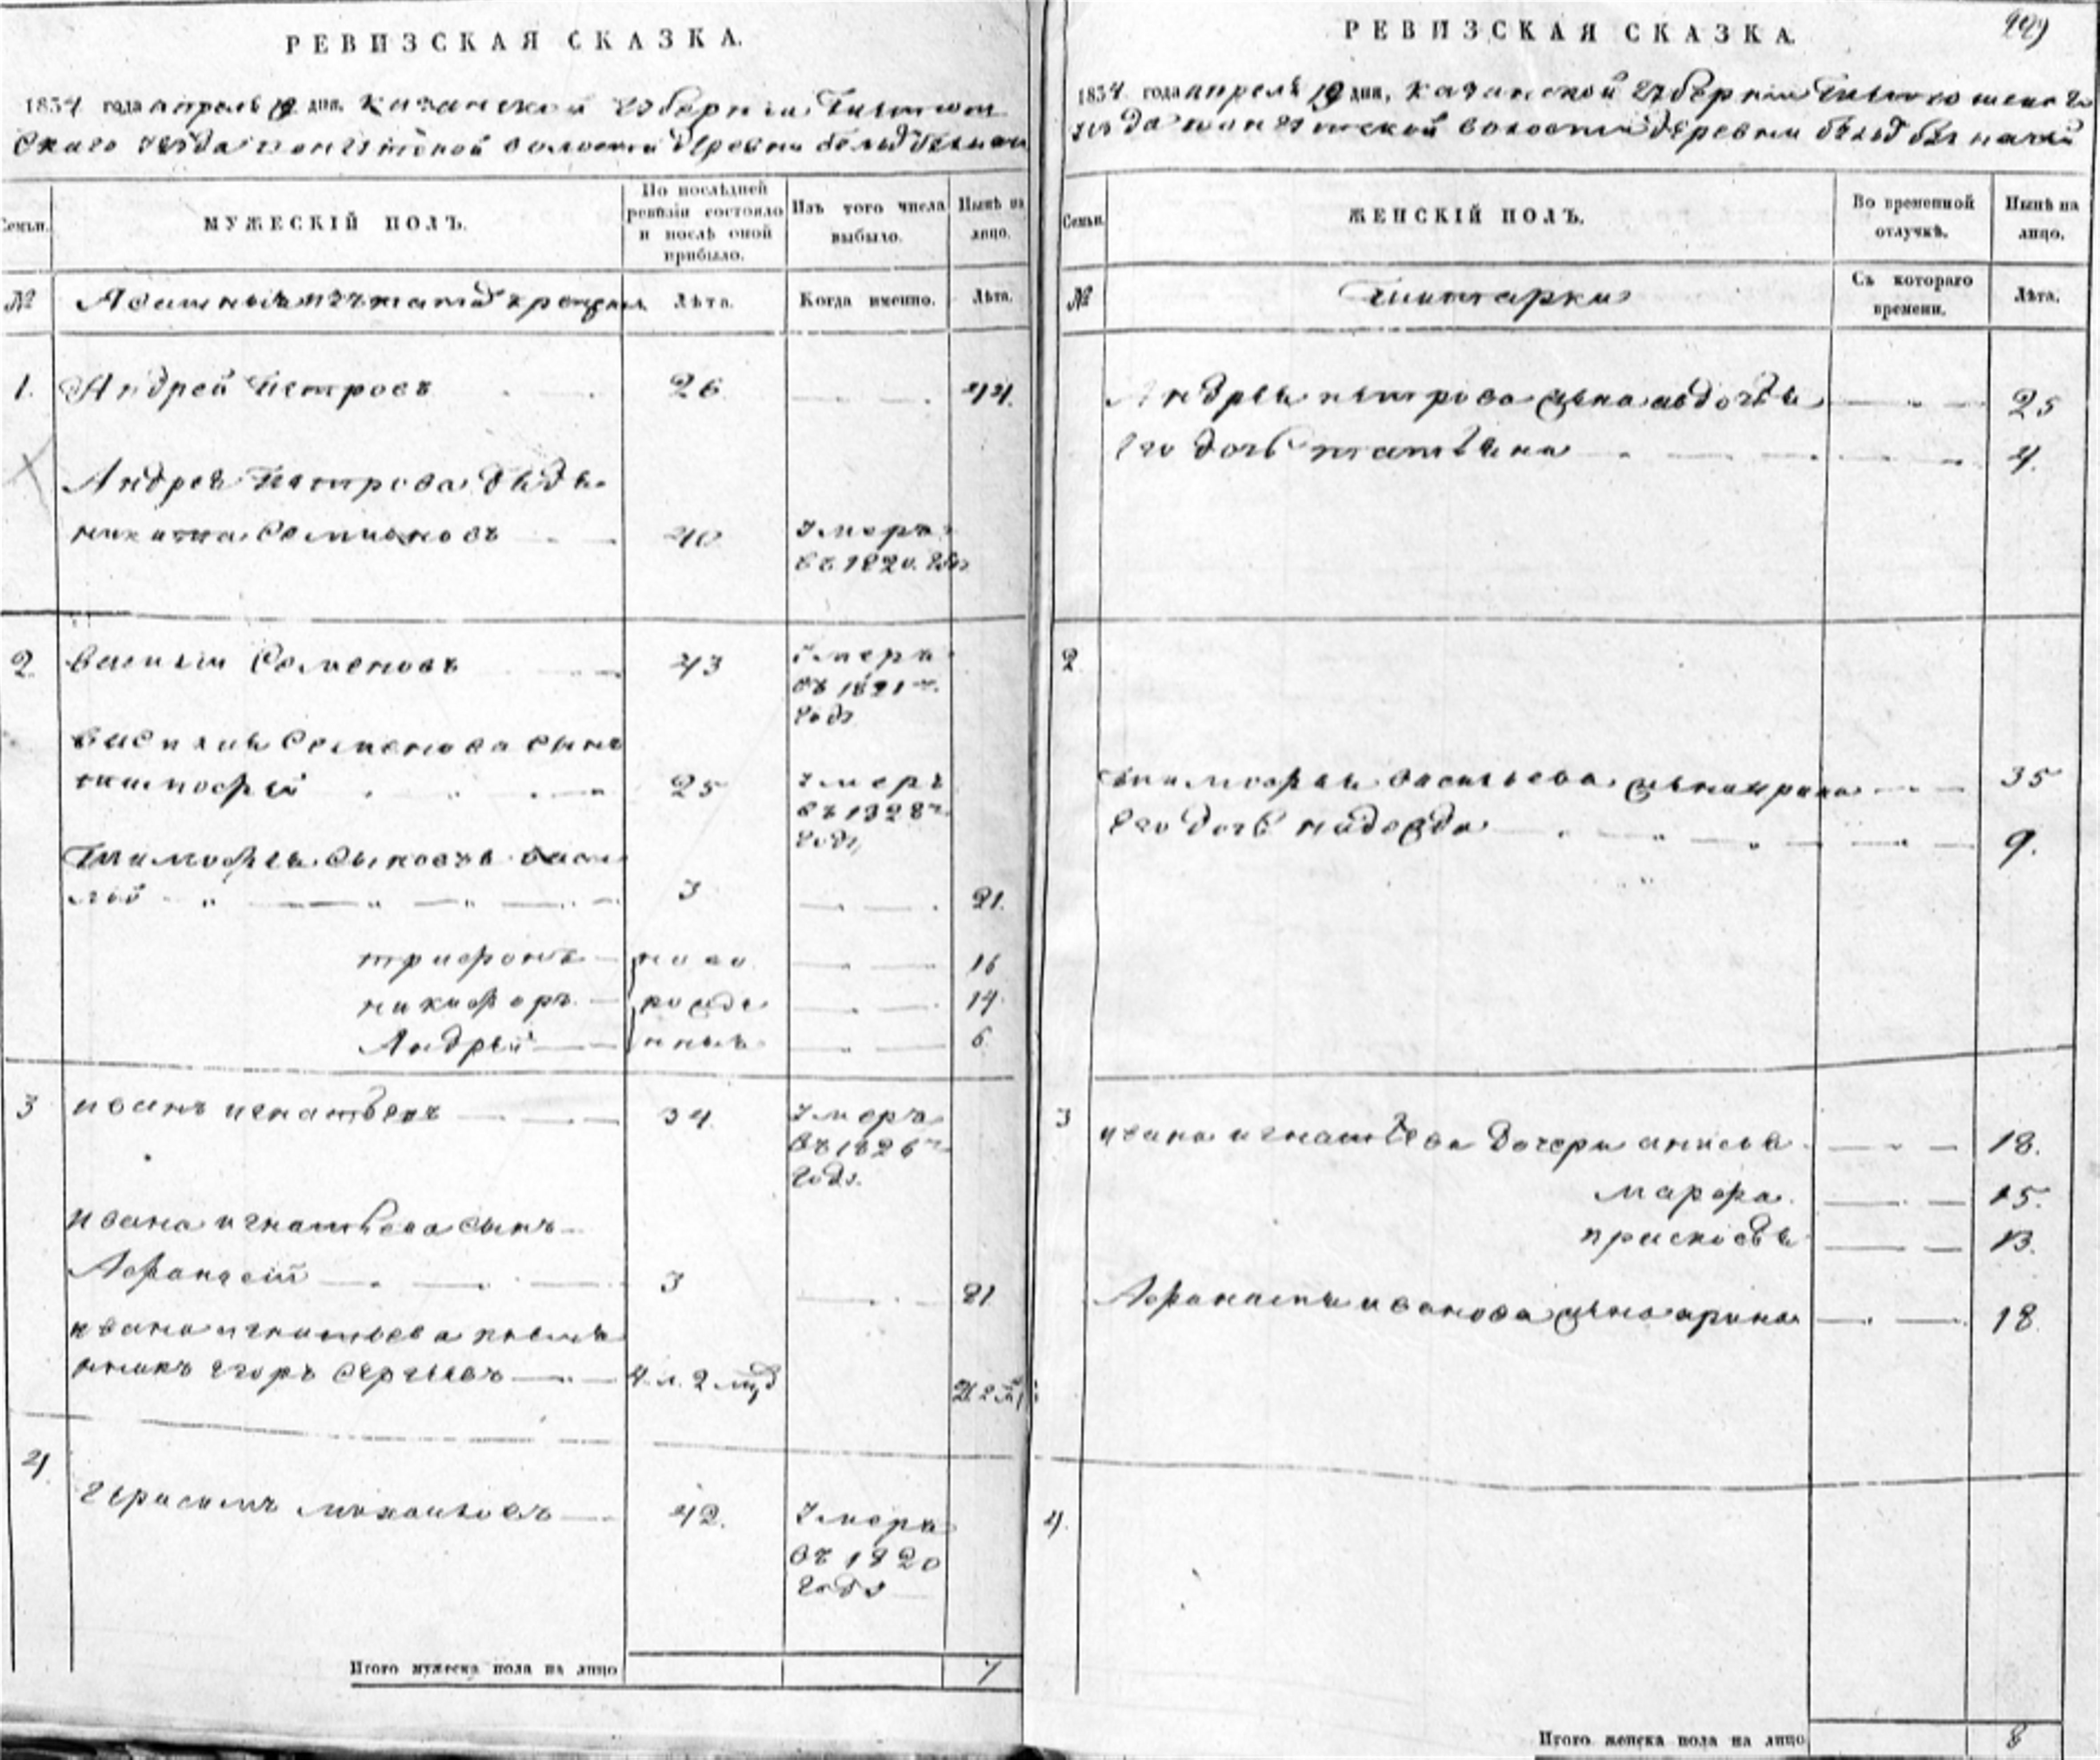 РЕВИЗСКАЯ СКАЗКА.
1834 года апреля 19 дня, Казанской губернии
скаго уезда волости деревни
Семьи.
МУЖЕСКІЙ ПОЛЪ.
По послѣдней ревизіи состояло и послѣ оной прибыло.
Изъ того числа выбыло.
Нынѣ на лицо.
№
Лѣта.
Когда именно.
Лѣта.
1. Андрей Петровъ 26 44.
Андрея Петрова дядя
никита Семионовъ 40 умеръ
въ 1820. году
2 василии Семеновъ 43 умеръ
въ 1821 м
году
василия Семенова сынъ
тимофей 25 умеръ
въ 1828 м
году
Тимофея сыновья васи
лий 3 21.
трифонъ ново 16
никифоръ рожде 14
Андрей нныя 6
3 иванъ игнатьевъ 34 умеръ
въ 1826 м
году.
ивана игнатьева сынъ
Афанасей 3 21
ивана игнатьева племя
нникъ егоръ сергеевъ 4. л. 2 мцъ
4 герасимъ михаиловъ 42. умеръ
въ 1820
году
Итого мужеска пола на лицо 7
РЕВИЗСКАЯ СКАЗКА.
1834 года апреля 19 дня, казанской губернии
уезда волости деревни
Семьи.
ЖЕНСКІЙ ПОЛЪ.
Во временной отлучкѣ.
Нынѣ на лицо.
№
Съ котораго времени.
Лѣта.
Андрея петрова жена авдотья 25
его дочь татьяна 4.
2
тимофея васильева жена ирина 35
его дочь надежда 9.
3 ивана игнатьева дочери анисья 18.
марфа 15.
прасковья 13.
Афанасья иванова жена арина 18
4.
Итого женска пола на лицо 8